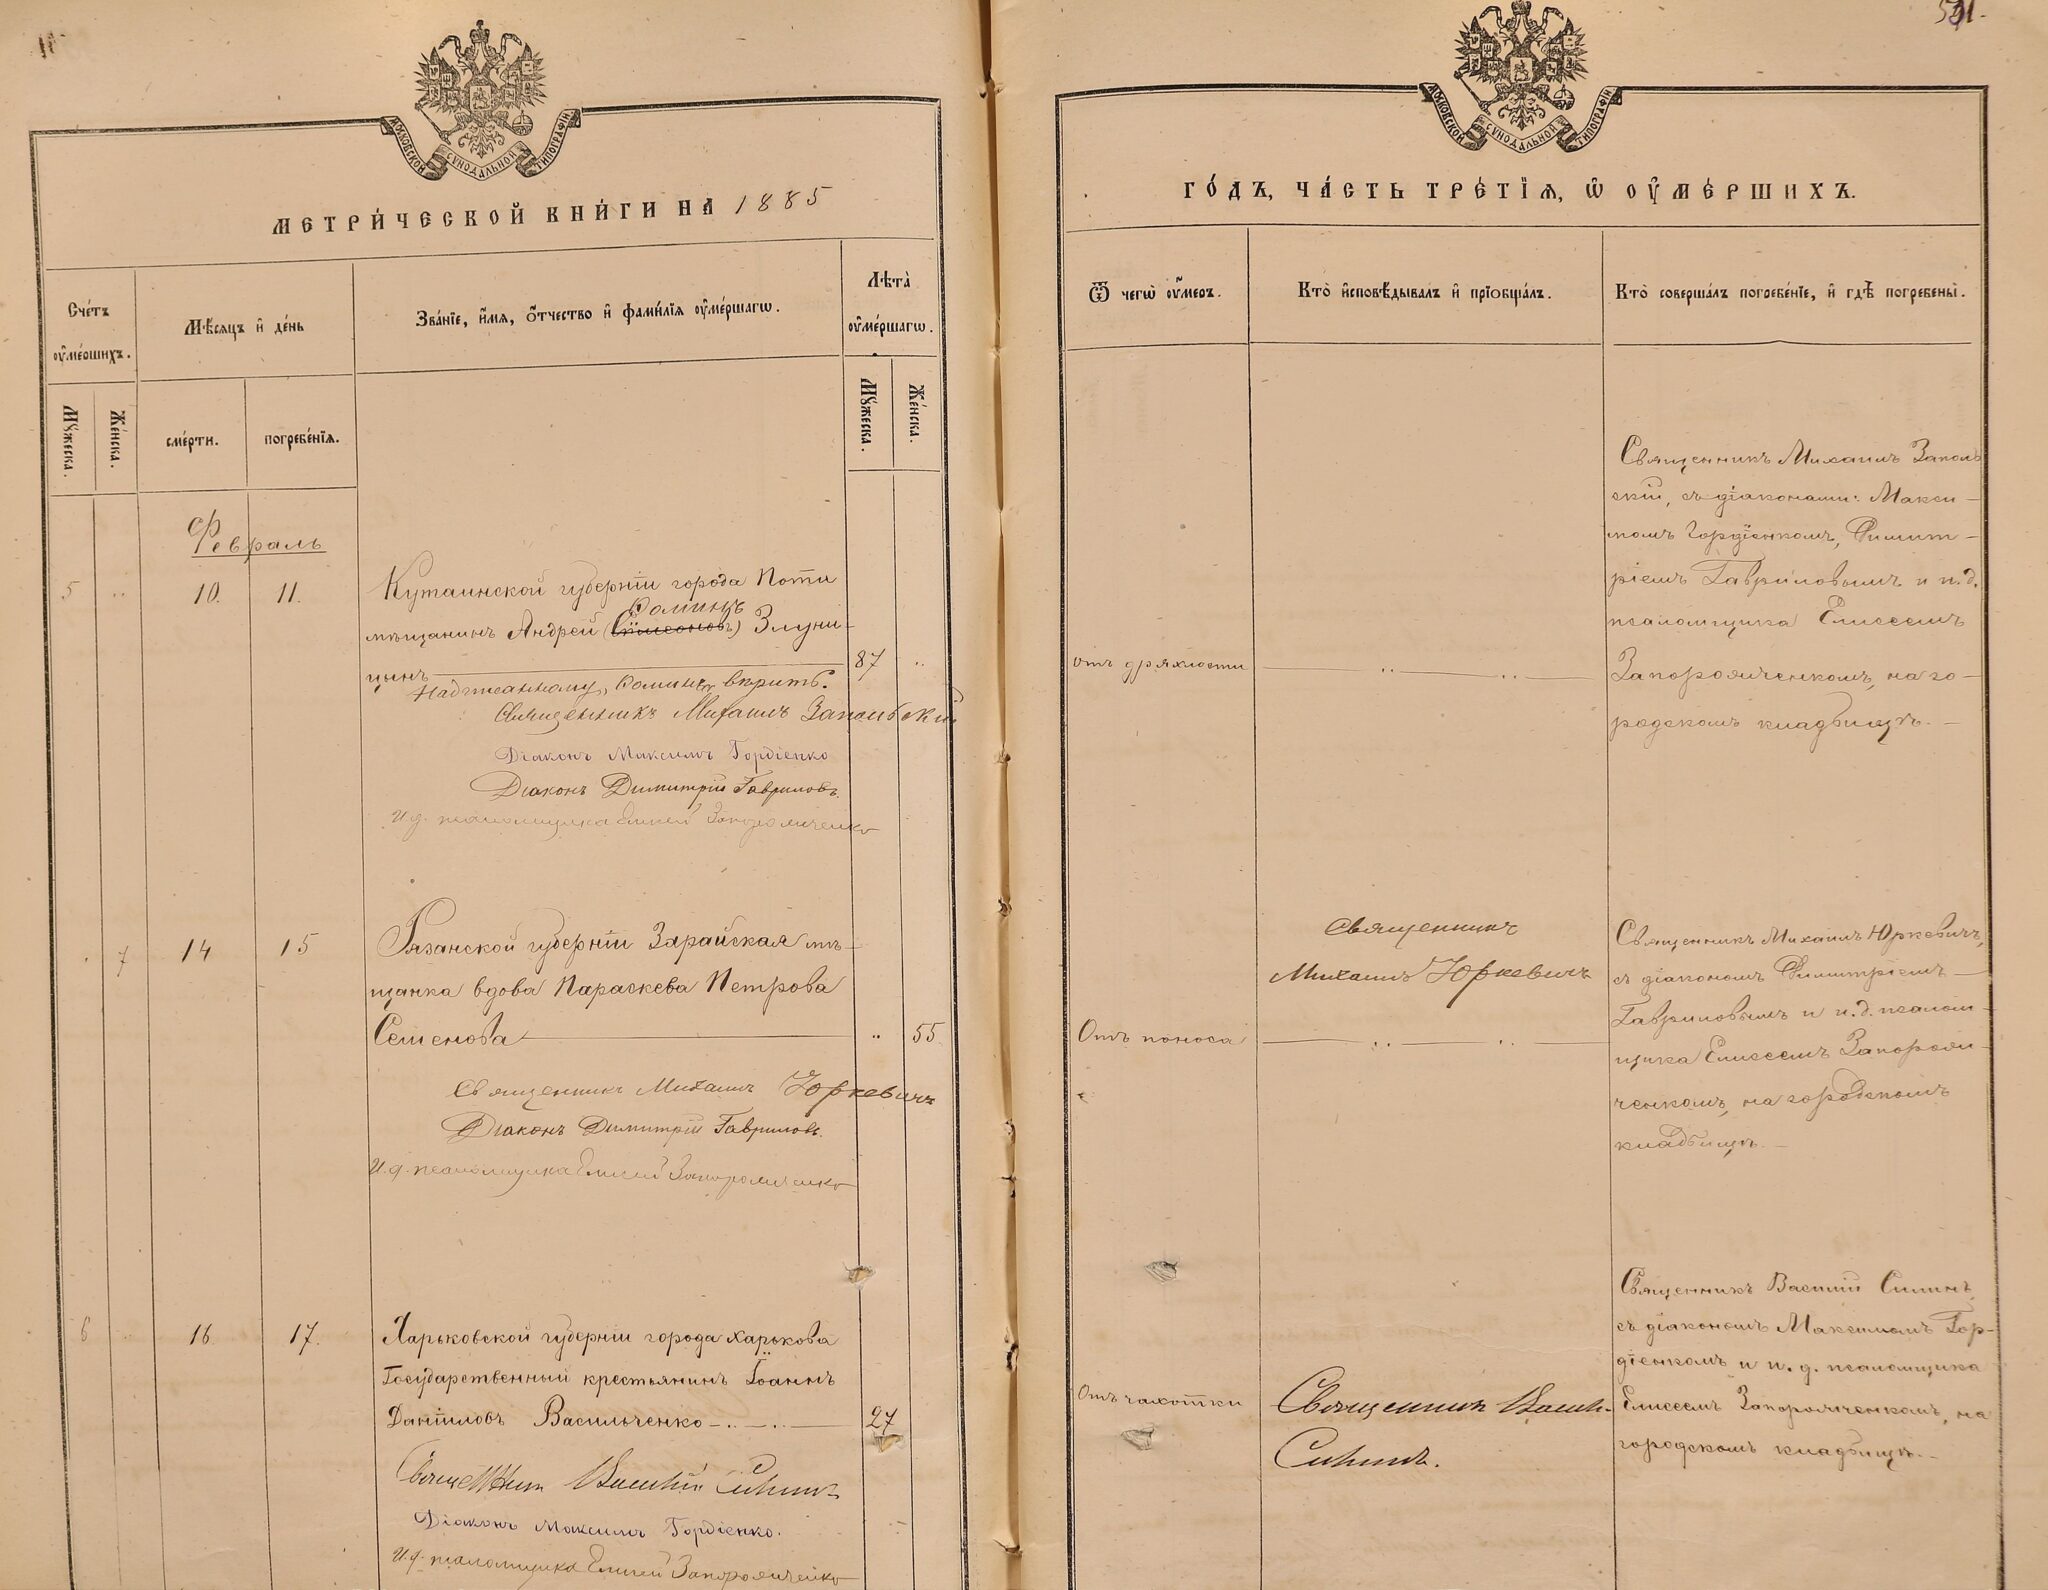 МОСКОВСКОЙ СУНОДАЛЬНОЙ ТИПОГРАФІИ
МЕТРИ́ЧЕСКОЙ КНИ́ГИ НА 1885
Сче́тъ оу҆ме́ршихъ.
Мѣ́сяцъ и҆ де́нь
Зва́нїе, и҆́мя, ѻ҆́тчество и҆ фами́лїя оу҆ме́ршагѡ.
Лѣта̀ оу҆ме́ршагѡ.
Мꙋ́жеска.
Же́нска.
сме́рти.
погребе́нїя.
Мꙋ́жеска.
Же́нска.
Февраль
5 .. 10. 11. Кутаинской губерніи города Поти
Фоминъ
мѣщанинъ Андрей (Сѵмеоновъ) Злуни-
цынъ 87 ..
Надписанному „Фоминъ" вѣрить.
Священникъ Михаилъ Запольскій
Діаконъ Максимъ Гордіенко
Діаконъ Димитрій Гавриловъ.
И. д. псаломщика Елисей Запорожченко
. 7 14 15 Рязанской губерніи Зарайская мѣ-
щанка вдова Параскева Петрова
Семенова .. 55
Священникъ Михаилъ Юркевичъ
Діаконъ Димитрій Гавриловъ.
И. д. псаломщика Елисей Запорожченко
6 .. 16. 17. Харьковской губерніи города Харькова
Государственный крестьянинъ Іоаннъ
Даніиловъ Васильченко 27
Священникъ Василій Силинъ
Діаконъ Максимъ Гордіенко.
И. д. псаломщика Елисей Запорожченко
МОСКОВСКОЙ СУНОДАЛЬНОЙ ТИПОГРАФІИ
ГО́ДЪ, ЧА́СТЬ ТРЕ́ТІЯ, Ѽ ОУ҆МЕ́РШИХЪ.
Ѿ чегѡ̀ оу҆́меръ.
Кто̀ и҆сповѣ́дывалъ и҆ прїобща́лъ.
Кто̀ соверша́лъ погребе́нїе, и҆ гдѣ̀ погребены̀.
Священникъ Михаилъ Заполь
скій, съ діаконами: Макси-
момъ Гордіенкомъ, Димит-
ріемъ Гавриловымъ и и. д.
псаломщика Елисеемъ
отъ дряхлости Запорожченкомъ, на го-
родскомъ кладбищѣ.
Священникъ
Михаилъ Юркевичъ
Священникъ Михаилъ Юркевичъ,
съ діакономъ Димитріемъ
Гавриловымъ и и. д. псалом-
Отъ поноса щика Елисеемъ Запорож-
ченкомъ, на городскомъ
кладбищѣ.
Священникъ Василій Силинъ,
съ діакономъ Максимомъ Гор-
діенкомъ и и. д. псаломщика
Отъ чахотки Священникъ Васил. Елисеемъ Запорожченкомъ, на
Силинъ. городскомъ кладбищѣ.